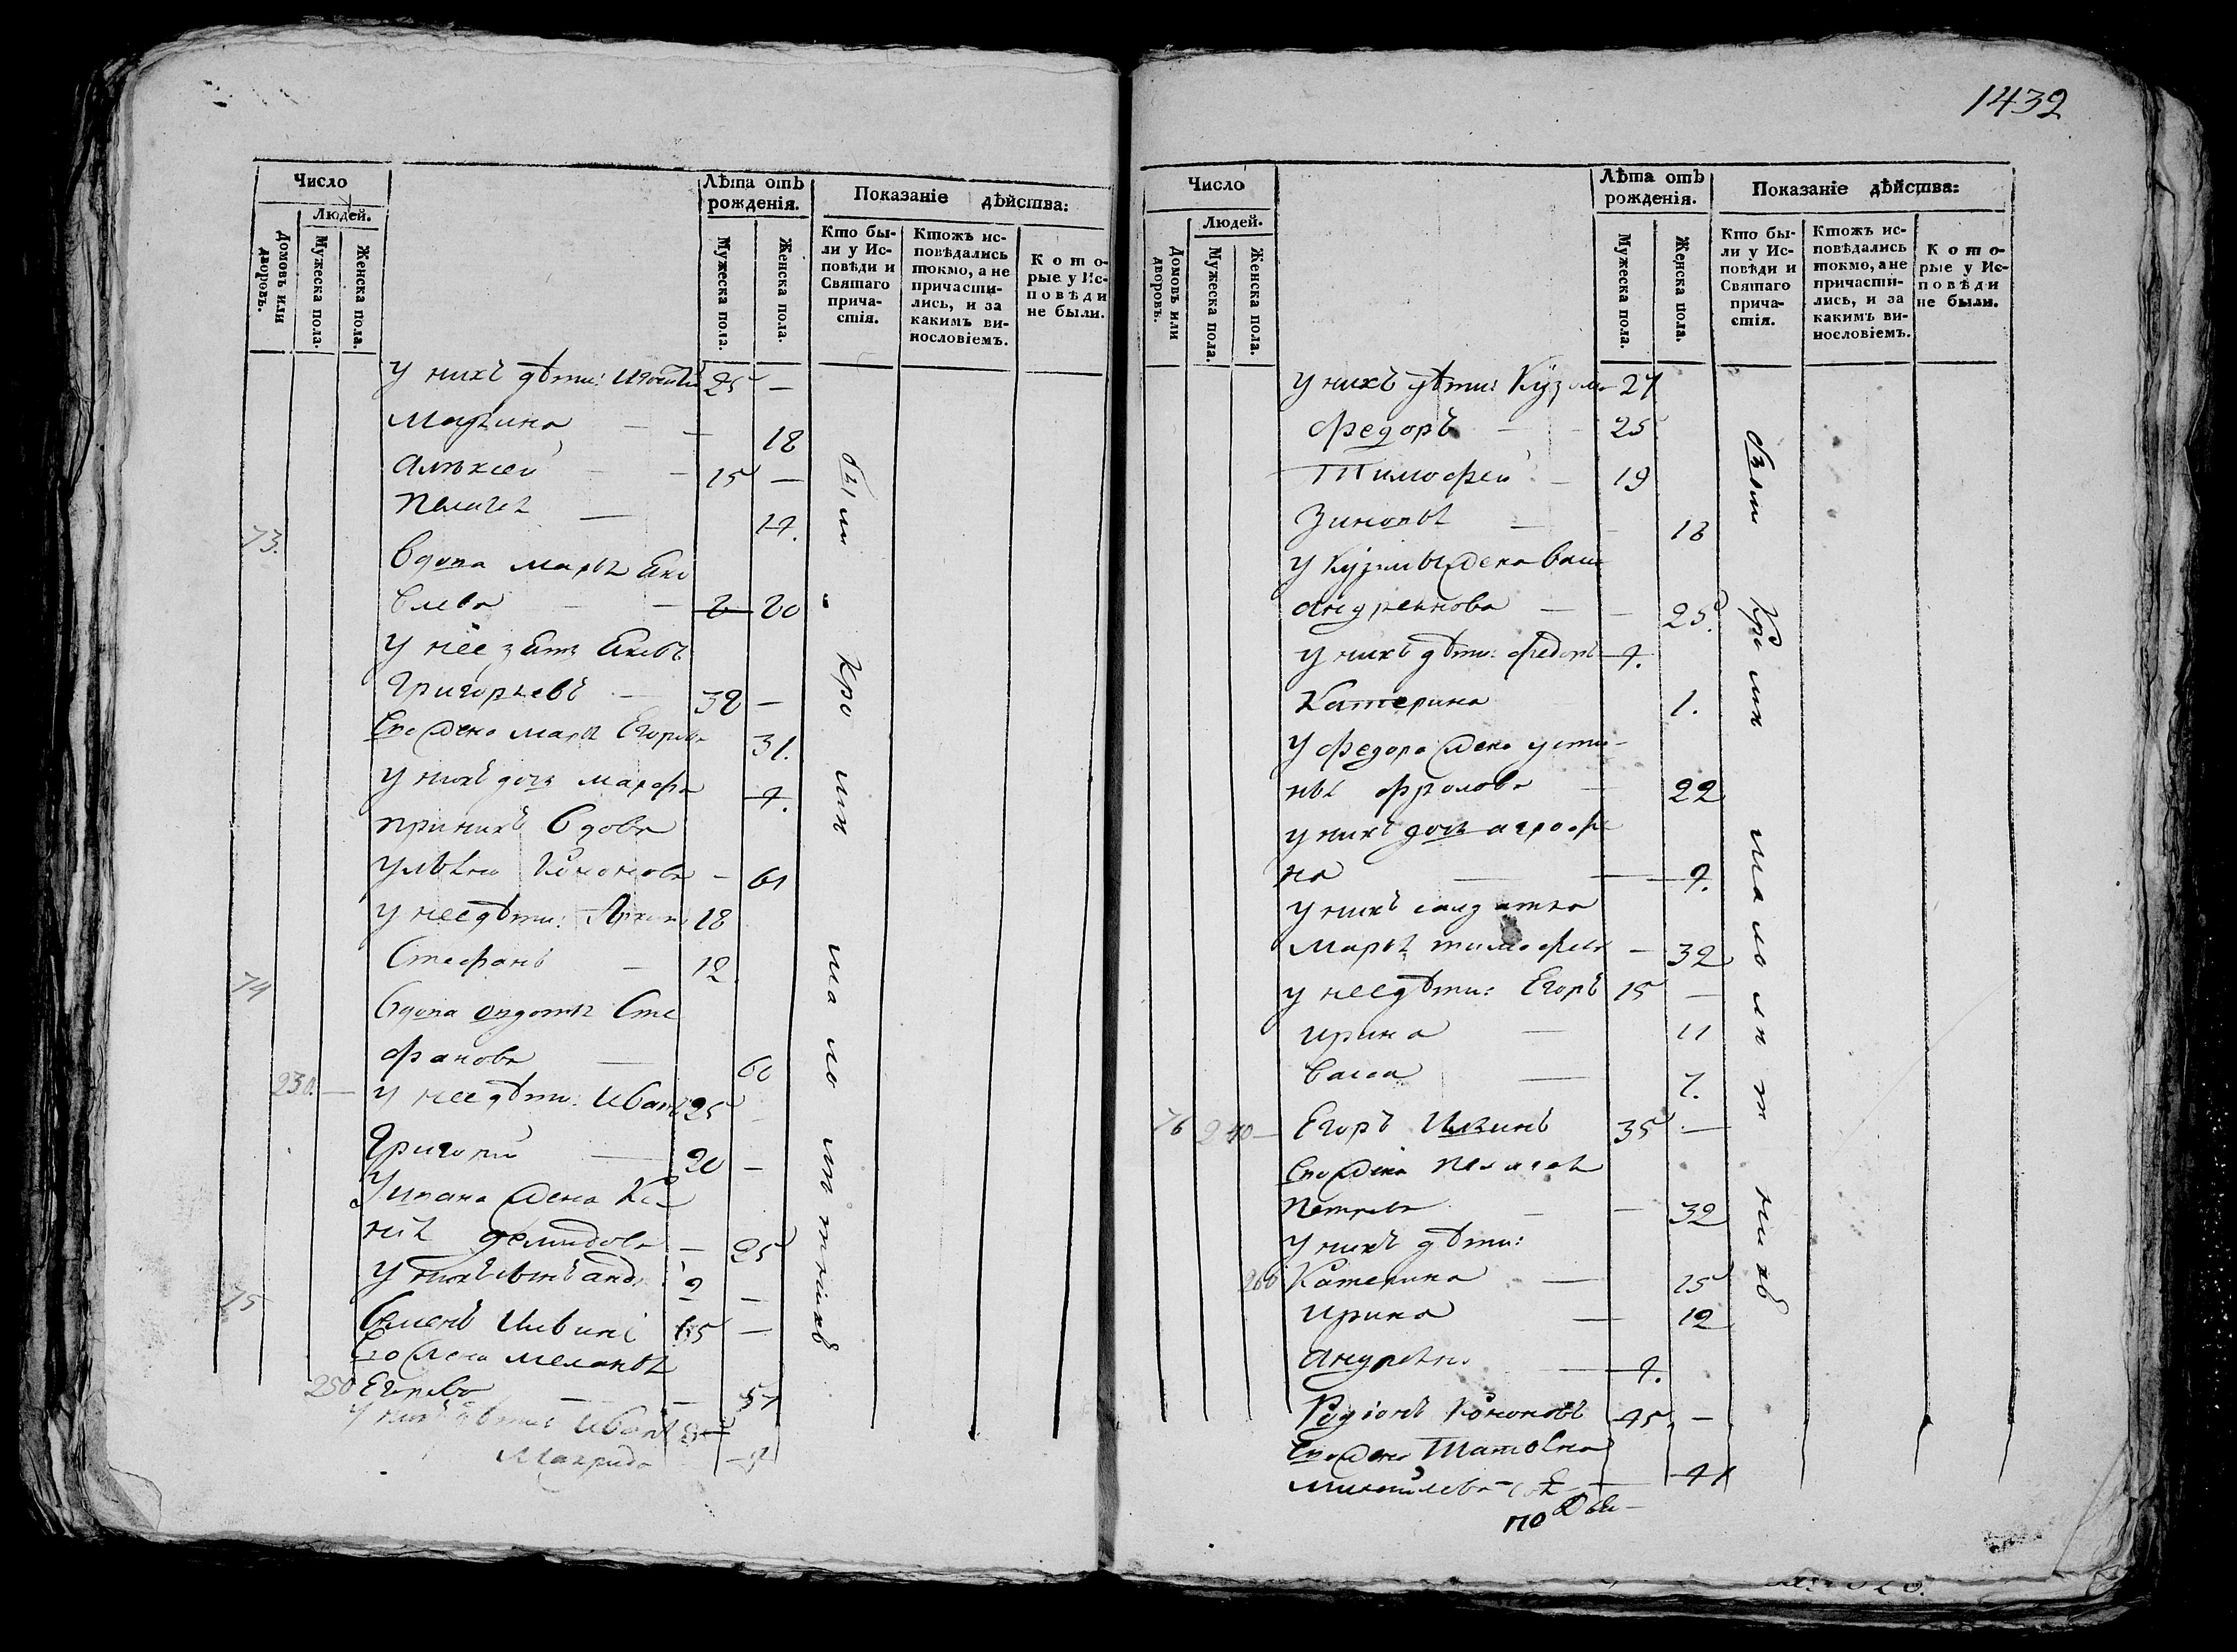 Число
Людей.
Домовъ или дворовъ.
Мужеска пола.
Женска пола.
Лѣта отъ рожденія.
Мужеска пола.
Женска пола.
Показаніе дѣйства:
Кто бы-
ли у Ис-
повѣди и
Святаго
прича-
стія.
Ктожъ ис-
повѣдались
токмо, а не
причасти-
лись, и за
какимъ ви-
нословіемъ.
Кото-
рые у Ис-
повѣди
не были.
У нихъ дѣти: 25 —
Марина — — 18
Алексей — — 15 —
Пелагея — 17.
73.
Вдова Марья Яко
влева — — 60
У нее зять Яковъ
Григорьевъ — 32 —
Его жена Марья Егорова 31.
У нихъ дочь Марфа 7.
При нихъ вдова
Ульяна Кононова — 61
У нее дѣти: 18
Стефанъ — 12.
74
Вдова Авдотья Сте
фанова — 60
230. — У нее дѣти: Иванъ 25 —
Григорий — 20 —
У Ивана жена
Демидова — 25
У нихъ сынъ 2 —
75
Семенъ 65 —
Его жена Меланья
250 Егорова — — 57
У нихъ дѣти: Иванъ
были кроме малолетнихъ
1432
Число
Людей.
Домовъ или дворовъ.
Мужеска пола.
Женска пола.
Лѣта отъ рожденія.
Мужеска пола.
Женска пола.
Показаніе дѣйства:
Кто бы-
ли у Ис-
повѣди и
Святаго
прича-
стія.
Ктожъ ис-
повѣдались
токмо, а не
причасти-
лись, и за
какимъ ви-
нословіемъ.
Кото-
рые у Ис-
повѣди
не были.
У нихъ дѣти: Кузма 27
Федоръ — — 25
Тимофей — 19
Зиновья — — 18
У Кузмы жена Васи
Андреянова — — 25.
У нихъ дѣти: Федоръ 7.
Катерина 1.
У Федора жена Усти-
нья Фролова — 22
У нихъ дочь Аграфе
на — — 7.
У нихъ солдатка
Марья Тимофева — 32
У нее дѣти: Егоръ 15 —
Ирина — 11
Васса — 7.
76 240 — Егоръ 35 —
Его жена Пелагея
Петрова — — 32
У нихъ дѣти:
260 Катерина — 15
Ирина — 12
— 7.
Родіонъ Кононовъ 45. —
Его жена Татьяна
41
были кроме малолетнихъ